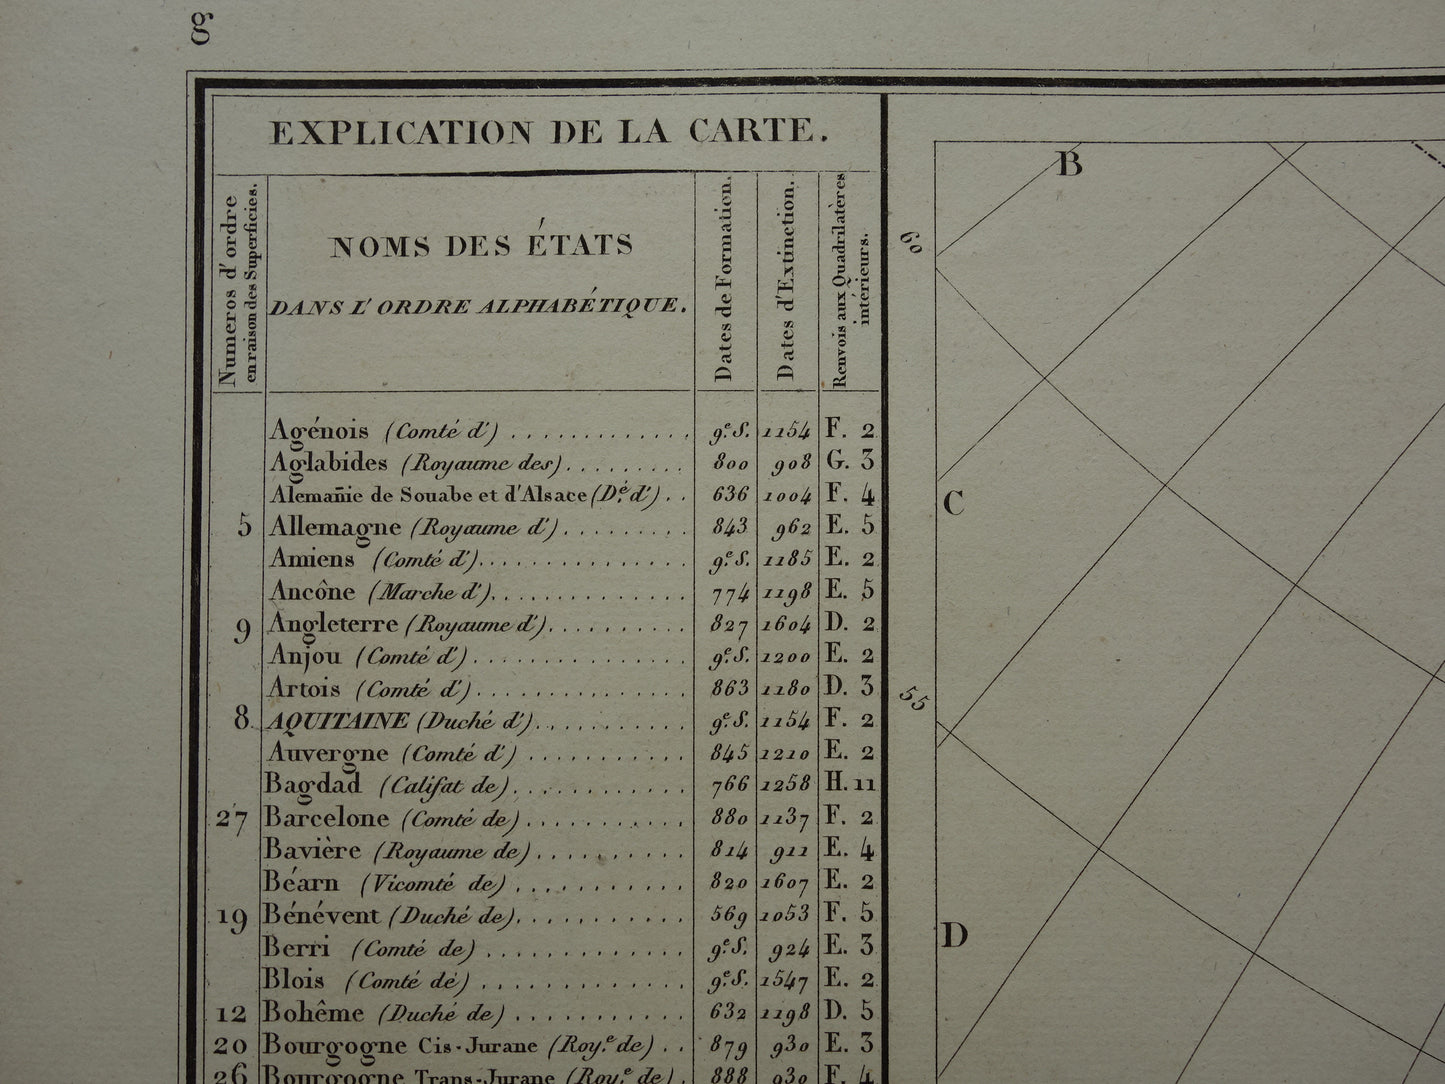 g
EXPLICATION DE LA CARTE.
Numeros d'ordre
en raison des Superficies.
NOMS DES ÉTATS
DANS L'ORDRE ALPHABÉTIQUE.
Dates de Formation.
Dates d'Extinction.
Renvois aux Quadrilatères
intérieurs.
Agénois (Comté d') 9e. S. 1154 F. 2
Aglabides (Royaume des) 800 908 G. 3
Alemañie de Souabe et d'Alsace (Dé. d') 636 1004 F. 4
5 Allemagne (Royaume d') 843 962 E. 5
Amiens (Comté d') 9e. S. 1185 E. 2
Ancône (Marche d') 774 1198 E. 5
9 Angleterre (Royaume d') 827 1604 D. 2
Anjou (Comté d') 9e. S. 1200 E. 2
Artois (Comté d') 863 1180 D. 3
8 AQUITAINE (Duché d') 9e. S. 1154 F. 2
Auvergne (Comté d') 845 1210 E. 2
Bagdad (Califat de) 766 1258 H. 11
27 Barcelone (Comté de) 880 1137 F. 2
Bavière (Royaume de) 814 911 E. 4
Béarn (Vicomté de) 820 1607 E. 2
19 Bénévent (Duché de) 569 1053 F. 5
Berri (Comté de) 9e. S. 924 E. 3
Blois (Comté de) 9e. S. 1547 E. 2
12 Bohême (Duché de) 632 1198 D. 5
20 Bourgogne Cis-Jurane (Roy.e de) 879 930 E. 3
26 Bourgogne Trans-Jurane (Roy.e de) 888 930 F. 4
B
60
C
55
D